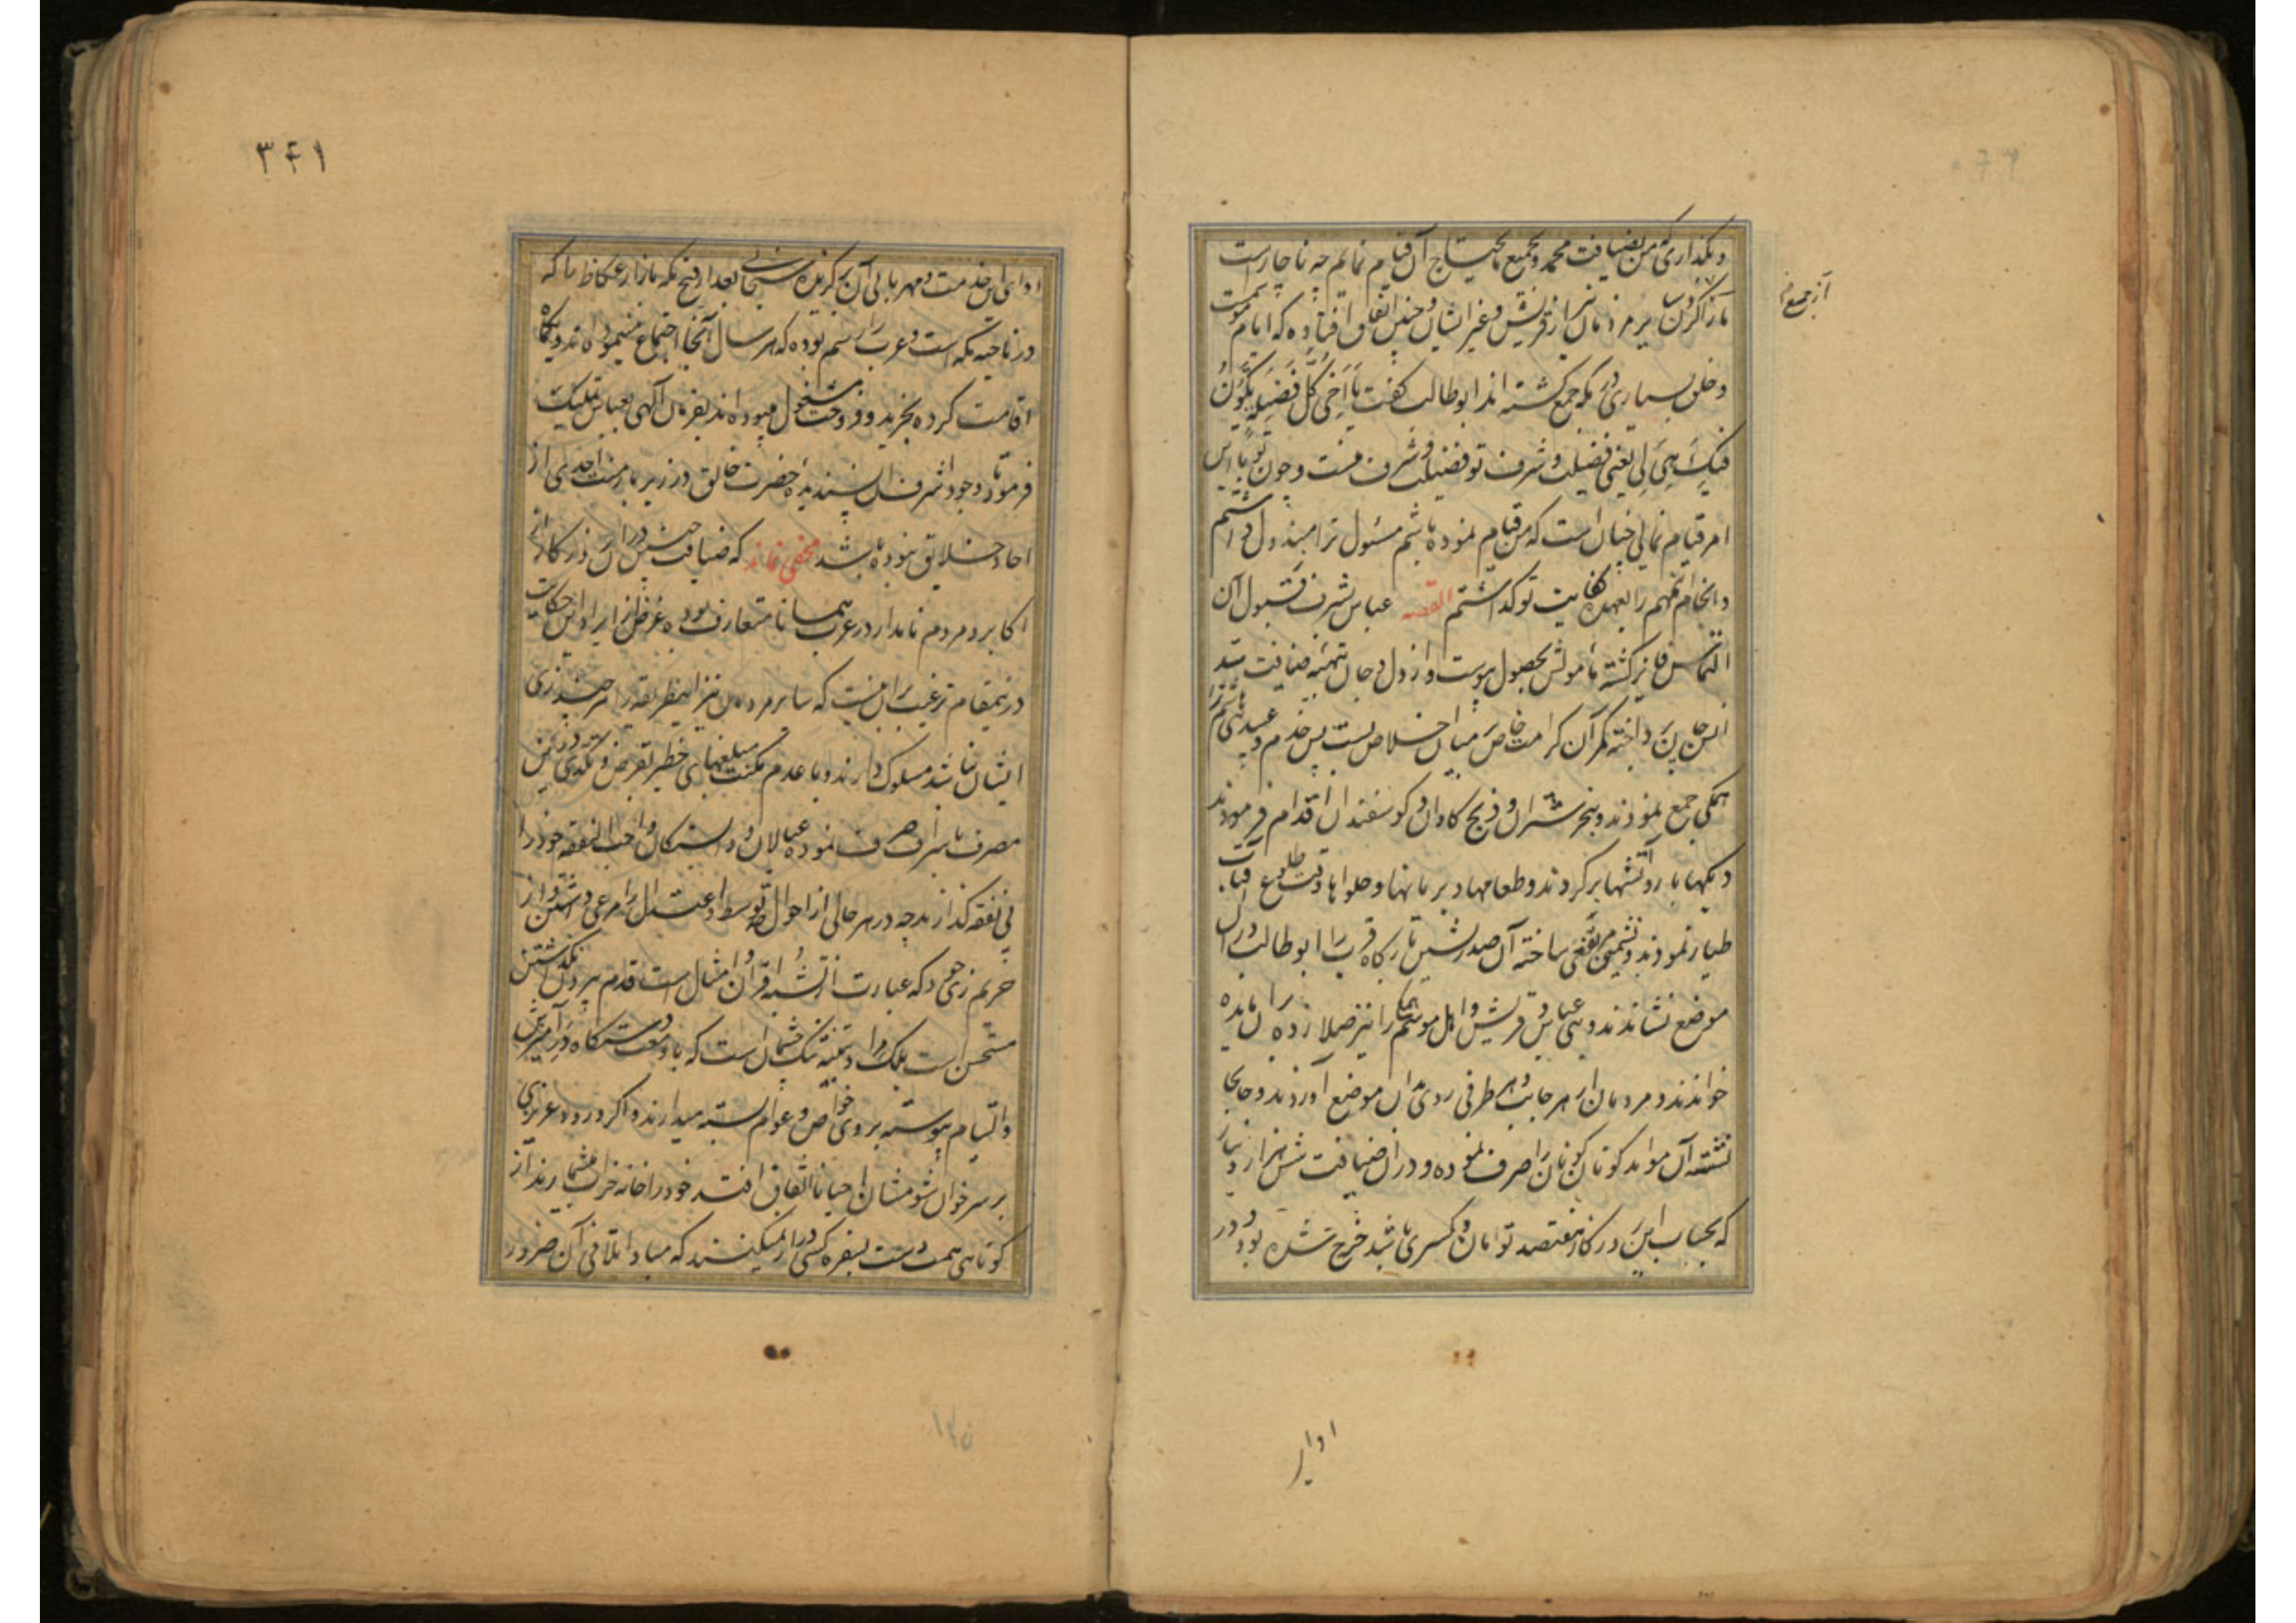 و بگذاری که من بضیافت محمد و بجمیع مایحتاج آن قیام نمایم چه ناچارست
از جمع
بسیار مردمان از قریش و غیر ایشان و چنین اتفاق افتاده که ایام موسمست
و خلق بسیاری در مکه جمع گشته اند ابوطالب گفت یا اخی کل فضیله یکون
فیک هی لی یعنی فضیلت و شرف تو فضیلت و شرف منست و چون تو باین
امر قیام نمایی چنان است که من قیام نموده باشم مسئول ترا مبذول داشتم
و انجام مهم را بعهده کفایت تو گذاشتم القصه عباس بشرف قبول آن
التماس فایز گشته مأمولش بحصول پیوست و از دل و جان تهیه ضیافت
کمر آن کرامت خاص بر میان اخلاص بست پس خدم و عبید
همگی جمع نمودند و بنحر شتران و ذبح گاوان و گوسفندان اقدام فرمودند
دیگها بار و آتشها بر کردند و طعامها و بریانها و حلواها وقت طلوع آفتاب
طیار نمودند و نشیمن مرتفعی ساخته آن صدرنشین بارگاه قرب را ابوطالب در آن
موضع نشاندند و بنی عباس و قریش و اهل موسم را نیز صلا زده
خواندند و مردمان از هر جانب و هر طرفی روی بدان موضع آوردند و جابجا
نشسته آن مواید گوناگون را صرف نموده و در آن ضیافت شش هزار دینار
که بحساب این روزگار هفتصد تومان و کسری باشد خرج شده بود و در
ادای
۳۴۱
ادای این خدمت و مهربانی آن برگزیده سبحانی بعد از فتح مکه بازار عکاظ را که
در ناحیه مکه است و عرب را رسم بوده که هر سال آنجا اجتماع مینموده اند و یکماه
اقامت کرده بخرید و فروخت مشغول میبوده اند بفرمان الهی بعباس تملیک
فرمود تا وجود اشرف آن پسندیده حضرت خالق در زیر بار منت احدی از
احاد خلایق نبوده باشد مخفی نماند که ضیافت چنین در آن روزگار از
اکابر و مردم نامدار در عرب همانا متعارف بوده غرض از ایراد این حکایت
درینمقام ترغیب بر آن نیست که سایر مردمان نیز اینطریقه را هر چند زی
ایشان نباشد مسلوک دارند و با عدم مکنت مبلغهای خطیر بقرض و تکدی درین
مصرف باسراف صرف نموده عیالان و بستگان واجب النفقه خود را
بی نفقه گذارند چه در هر حالی از احوال توسط و اعتدال را مرعی داشتن و از
حریم زی خود که عبارت از شبه اقران و امثال است قدم بیرون نگذاشتن
مستحسن است بلکه و تنبیه تنگ چشمان است که با وسعت دستگاه در آمیزش
و التیام پیوسته بر روی خواص و عوام بسته میدارند و اگر ورود عزیزی
بر سر خوان شومشان احیانا اتفاق افتد خود را خانه خراب شمارند از
کوتاهی همت دست بسفره کسی دراز نمیکنند که مبادا تلافی آن ضرور